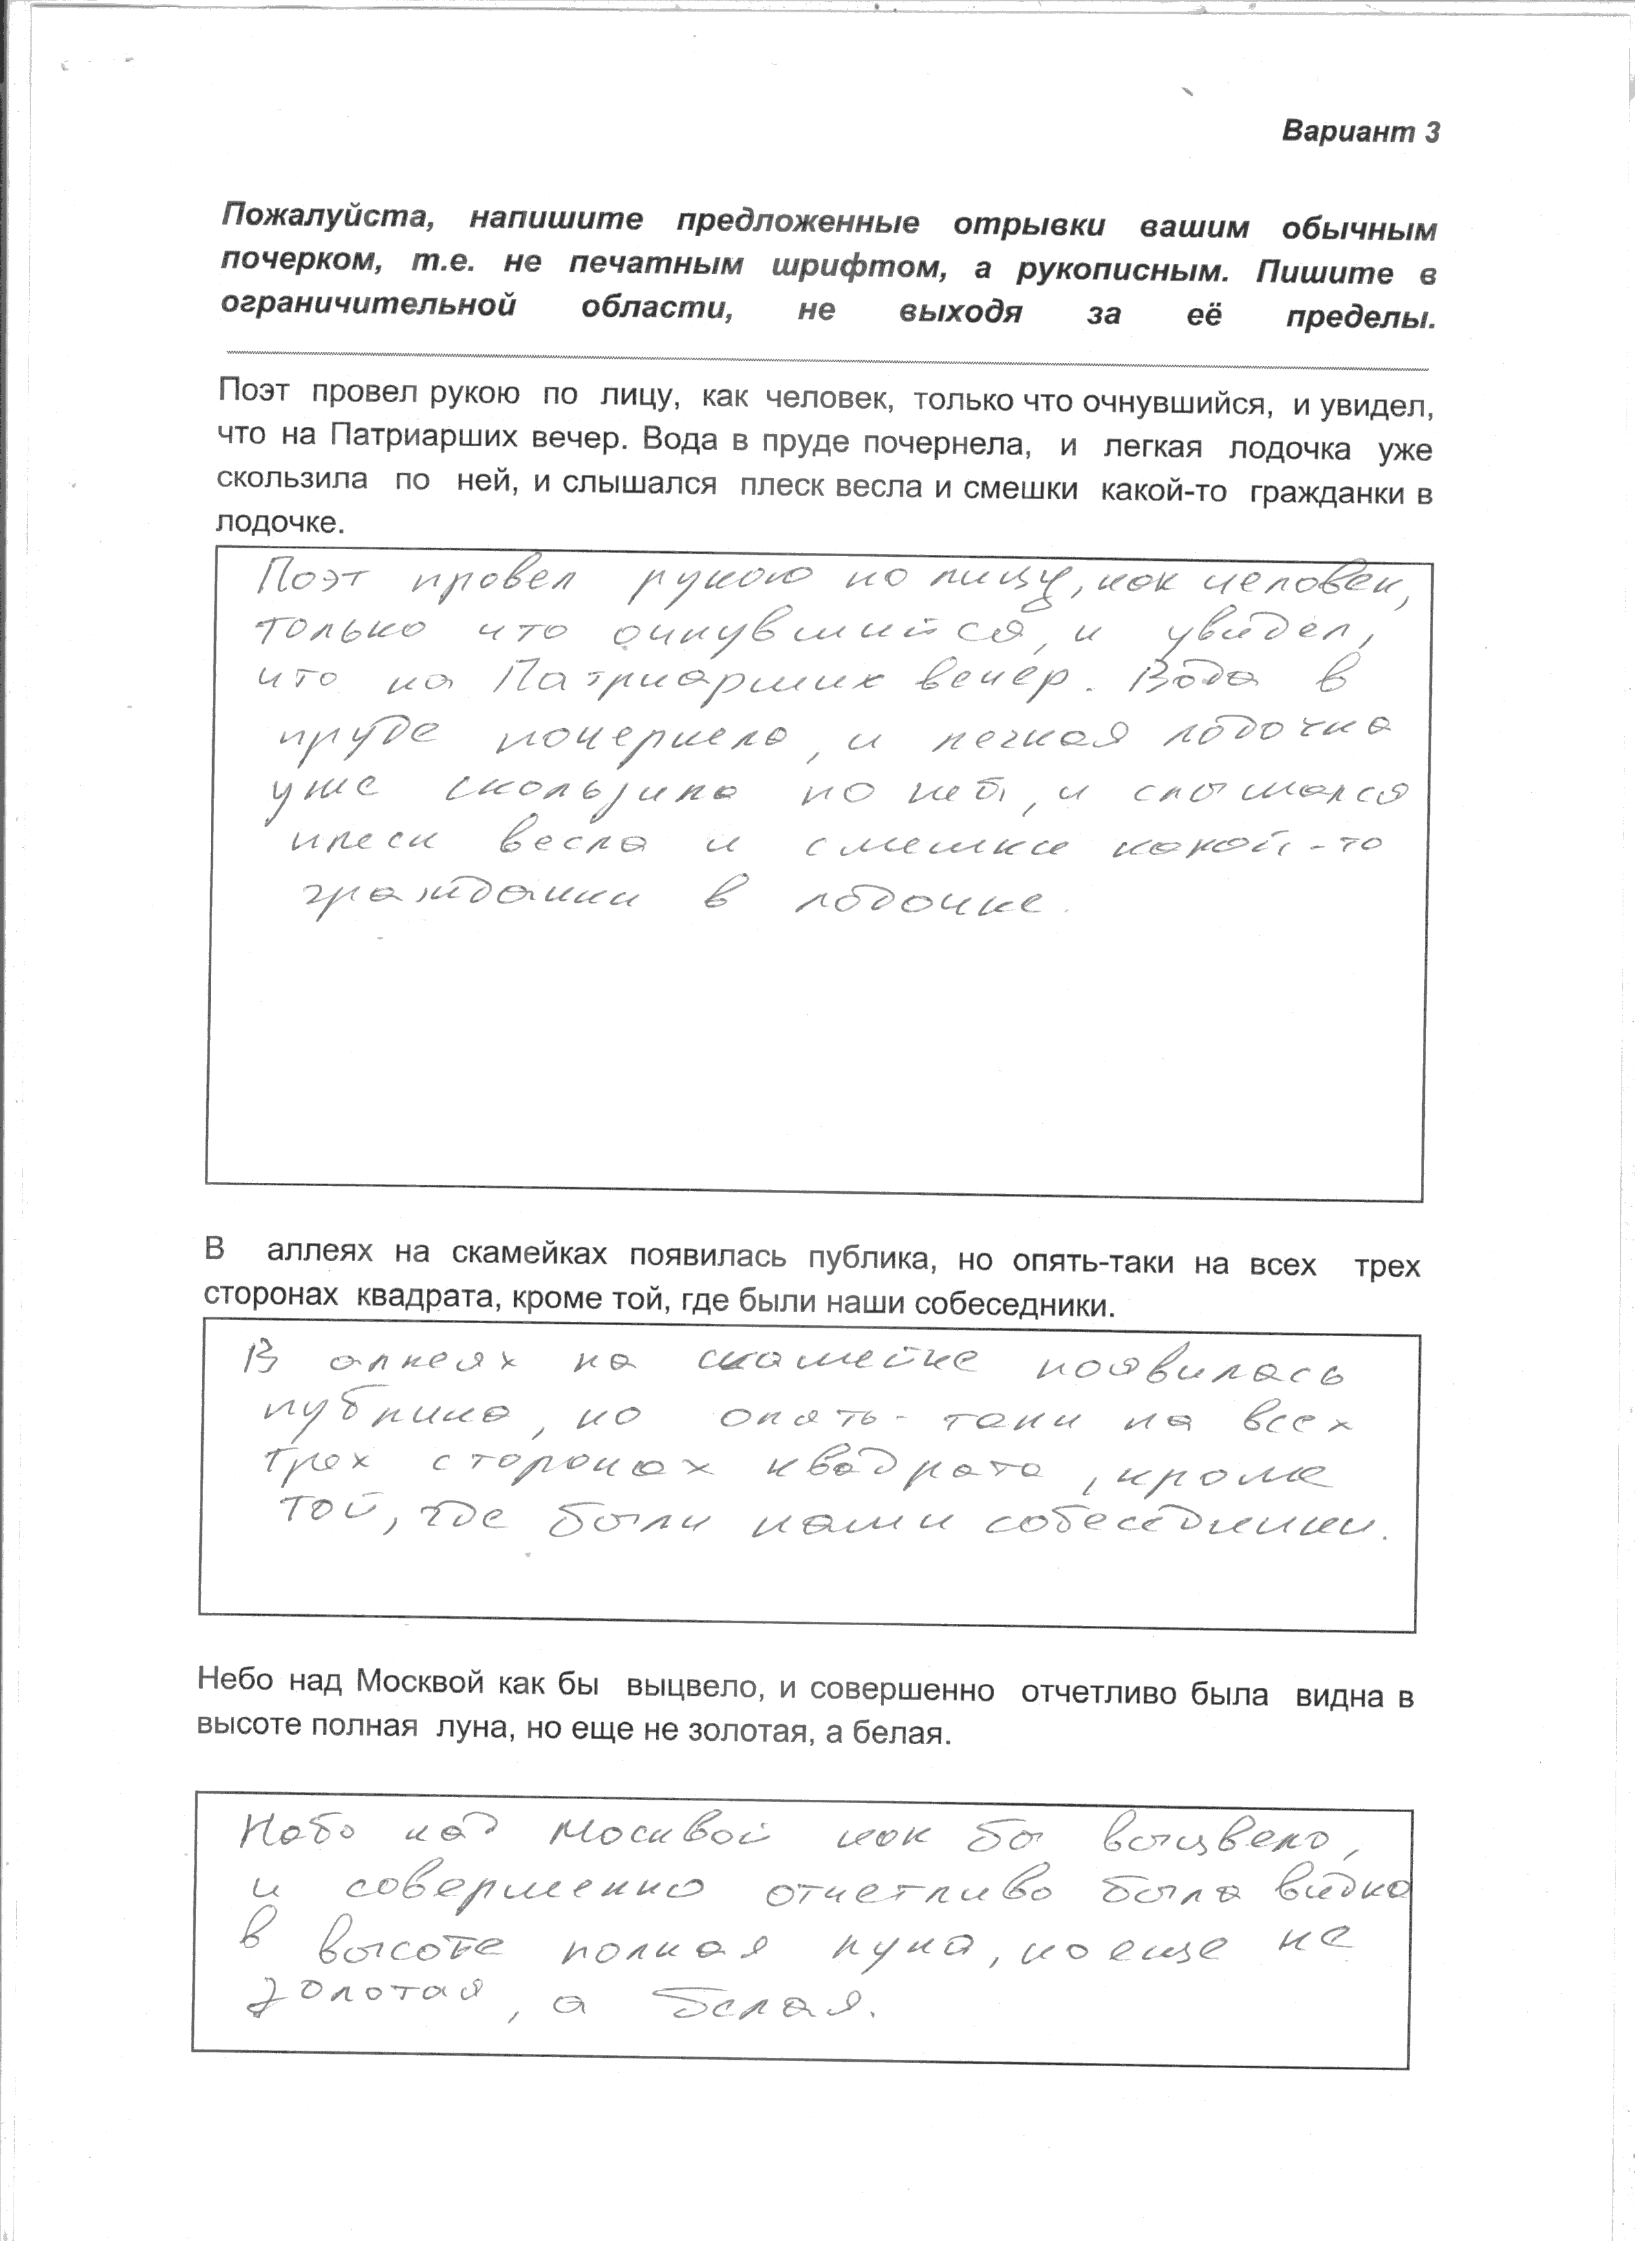 Вариант 3
Пожалуйста, напишите предложенные отрывки вашим обычным
почерком, т.е. не печатным шрифтом, а рукописным. Пишите в
ограничительной области, не выходя за её пределы.
Поэт провел рукою по лицу, как человек, только что очнувшийся, и увидел,
что на Патриарших вечер. Вода в пруде почернела, и легкая лодочка уже
скользила по ней, и слышался плеск весла и смешки какой-то гражданки в
лодочке.
Поэт провел рукою по лицу, как человек,
только что очнувшийся, и увидел,
что на Патриарших вечер. Вода в
пруде почернела, и легкая лодочка
уже скользила по ней, и слышался
плеск весла и смешки какой-то
гражданки в лодочке.
В аллеях на скамейках появилась публика, но опять-таки на всех трех
сторонах квадрата, кроме той, где были наши собеседники.
В аллеях на скамейке появилась
публика, но опять-таки на всех
трех сторонах квадрата, кроме
той, где были наши собеседники.
Небо над Москвой как бы выцвело, и совершенно отчетливо была видна в
высоте полная луна, но еще не золотая, а белая.
Небо над Москвой как бы выцвело,
и совершенно отчетливо была видна
в высоте полная луна, но еще не
золотая, а белая.